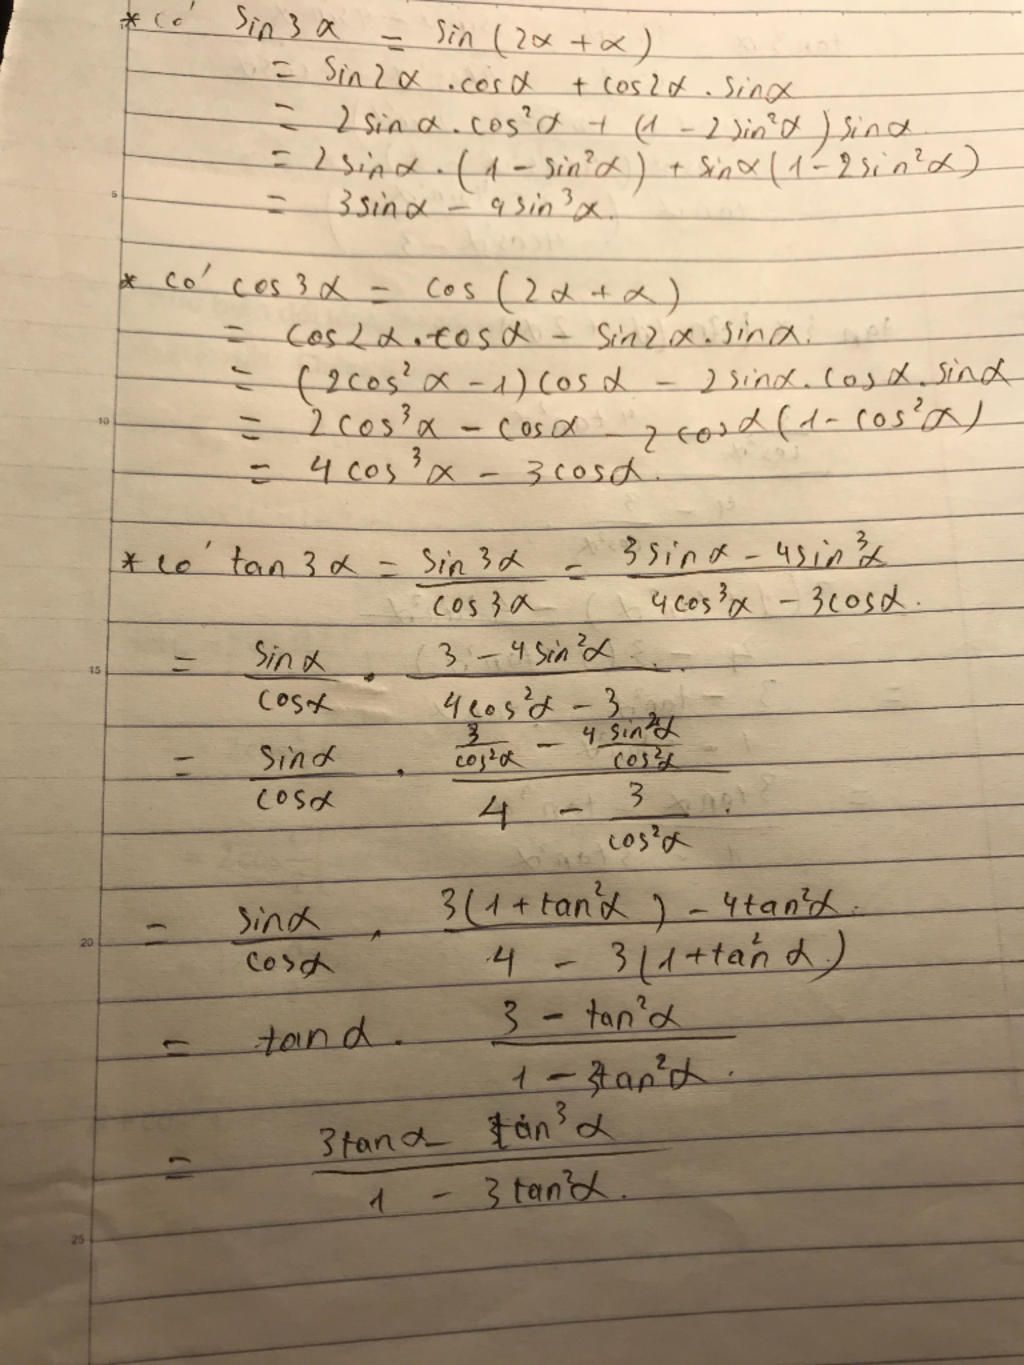 * có sin3α = sin(2α + α)
= sin2α.cosα + cos2α.sinα
= 2sinα.cos²α + (1 - 2sin²α)sinα
= 2sinα.(1 - sin²α) + sinα(1 - 2sin²α)
5
= 3sinα - 4sin³α.
* có cos3α = cos(2α + α)
= cos2α.cosα - sin2α.sinα.
= (2cos²α - 1)cosα - 2sinα.cosα.sinα
10
= 2cos³α - cosα - 2cosα(1 - cos²α)
= 4cos³α - 3cosα.
* có tan3α = sin3α / cos3α = (3sinα - 4sin³α) / (4cos³α - 3cosα).
15
= sinα / cosα . (3 - 4sin²α) / (4cos²α - 3)
= sinα / cosα . (3/cos²α - 4 sin²α/cos²α) / (4 - 3/cos²α)
20
= sinα / cosα . (3(1 + tan²α) - 4tan²α) / (4 - 3(1 + tan²α))
= tanα . (3 - tan²α) / (1 - 3tan²α).
= (3tanα - tan³α) / (1 - 3tan²α).
25